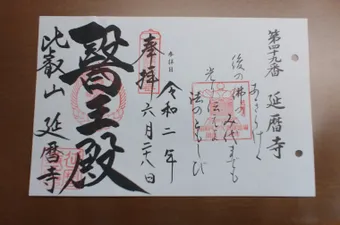 第四十九番 延暦寺
あきらけく
後の佛の
み代までも
光りつたへよ
法のともしび
奉拝
令和二年
六月二十八日
醫王殿
比叡山 延暦寺